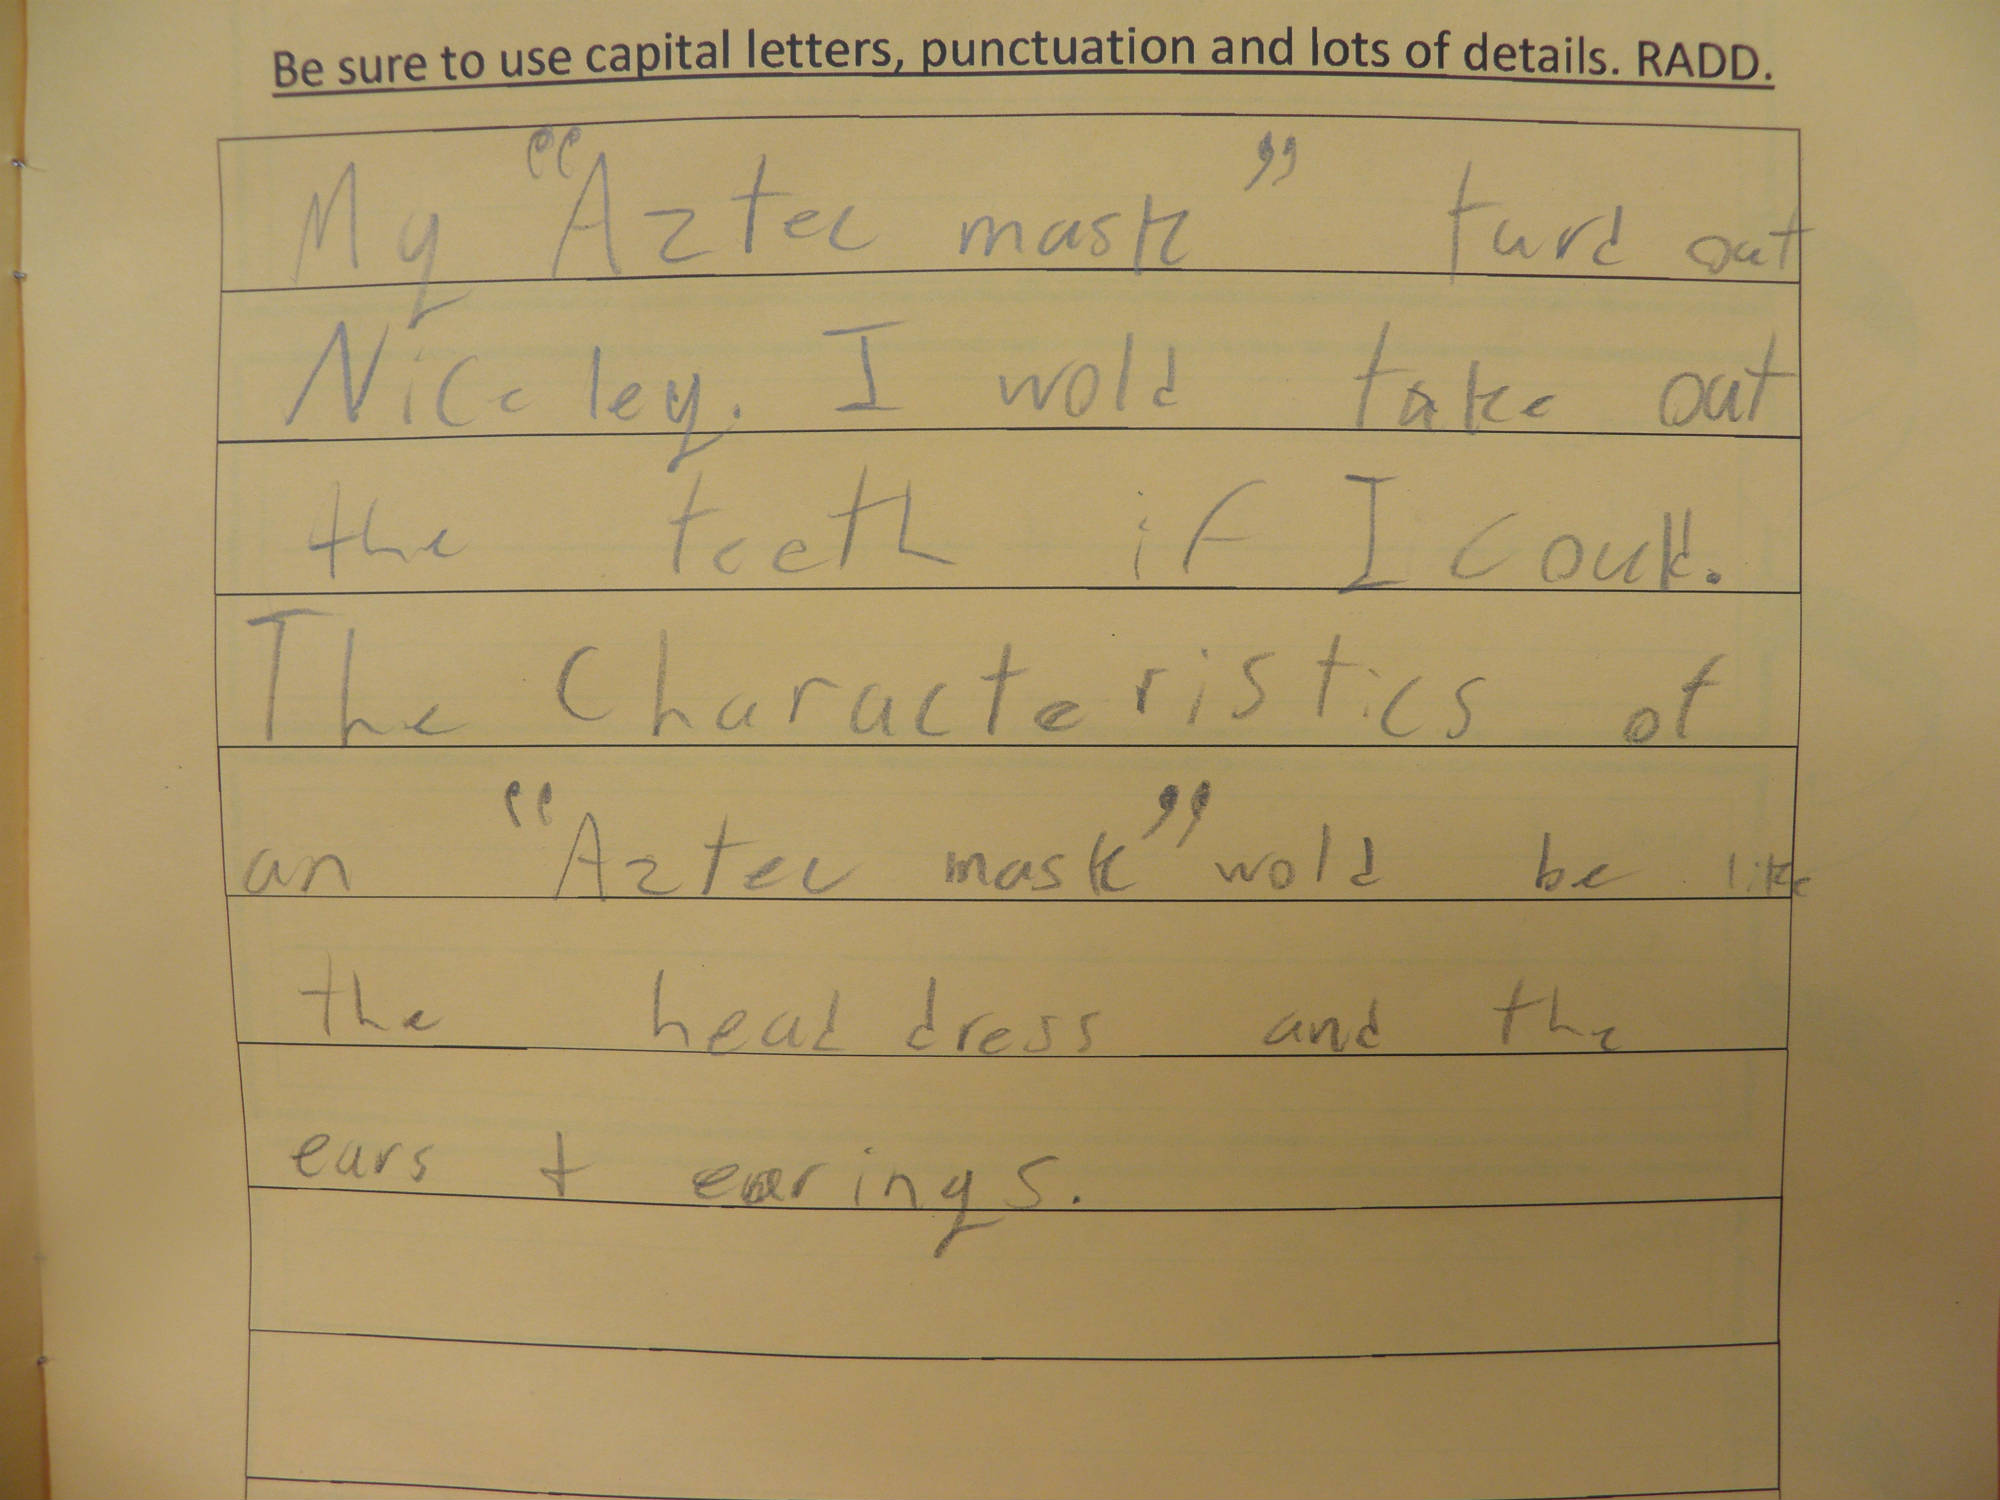 Be sure to use capital letters, punctuation and lots of details. RADD.
My "Aztec mask" turd out
Niceley. I wold take out
the teeth if I could.
The characteristics of
an "Aztec mask" wold be like
the head dress and the
ears + earings.